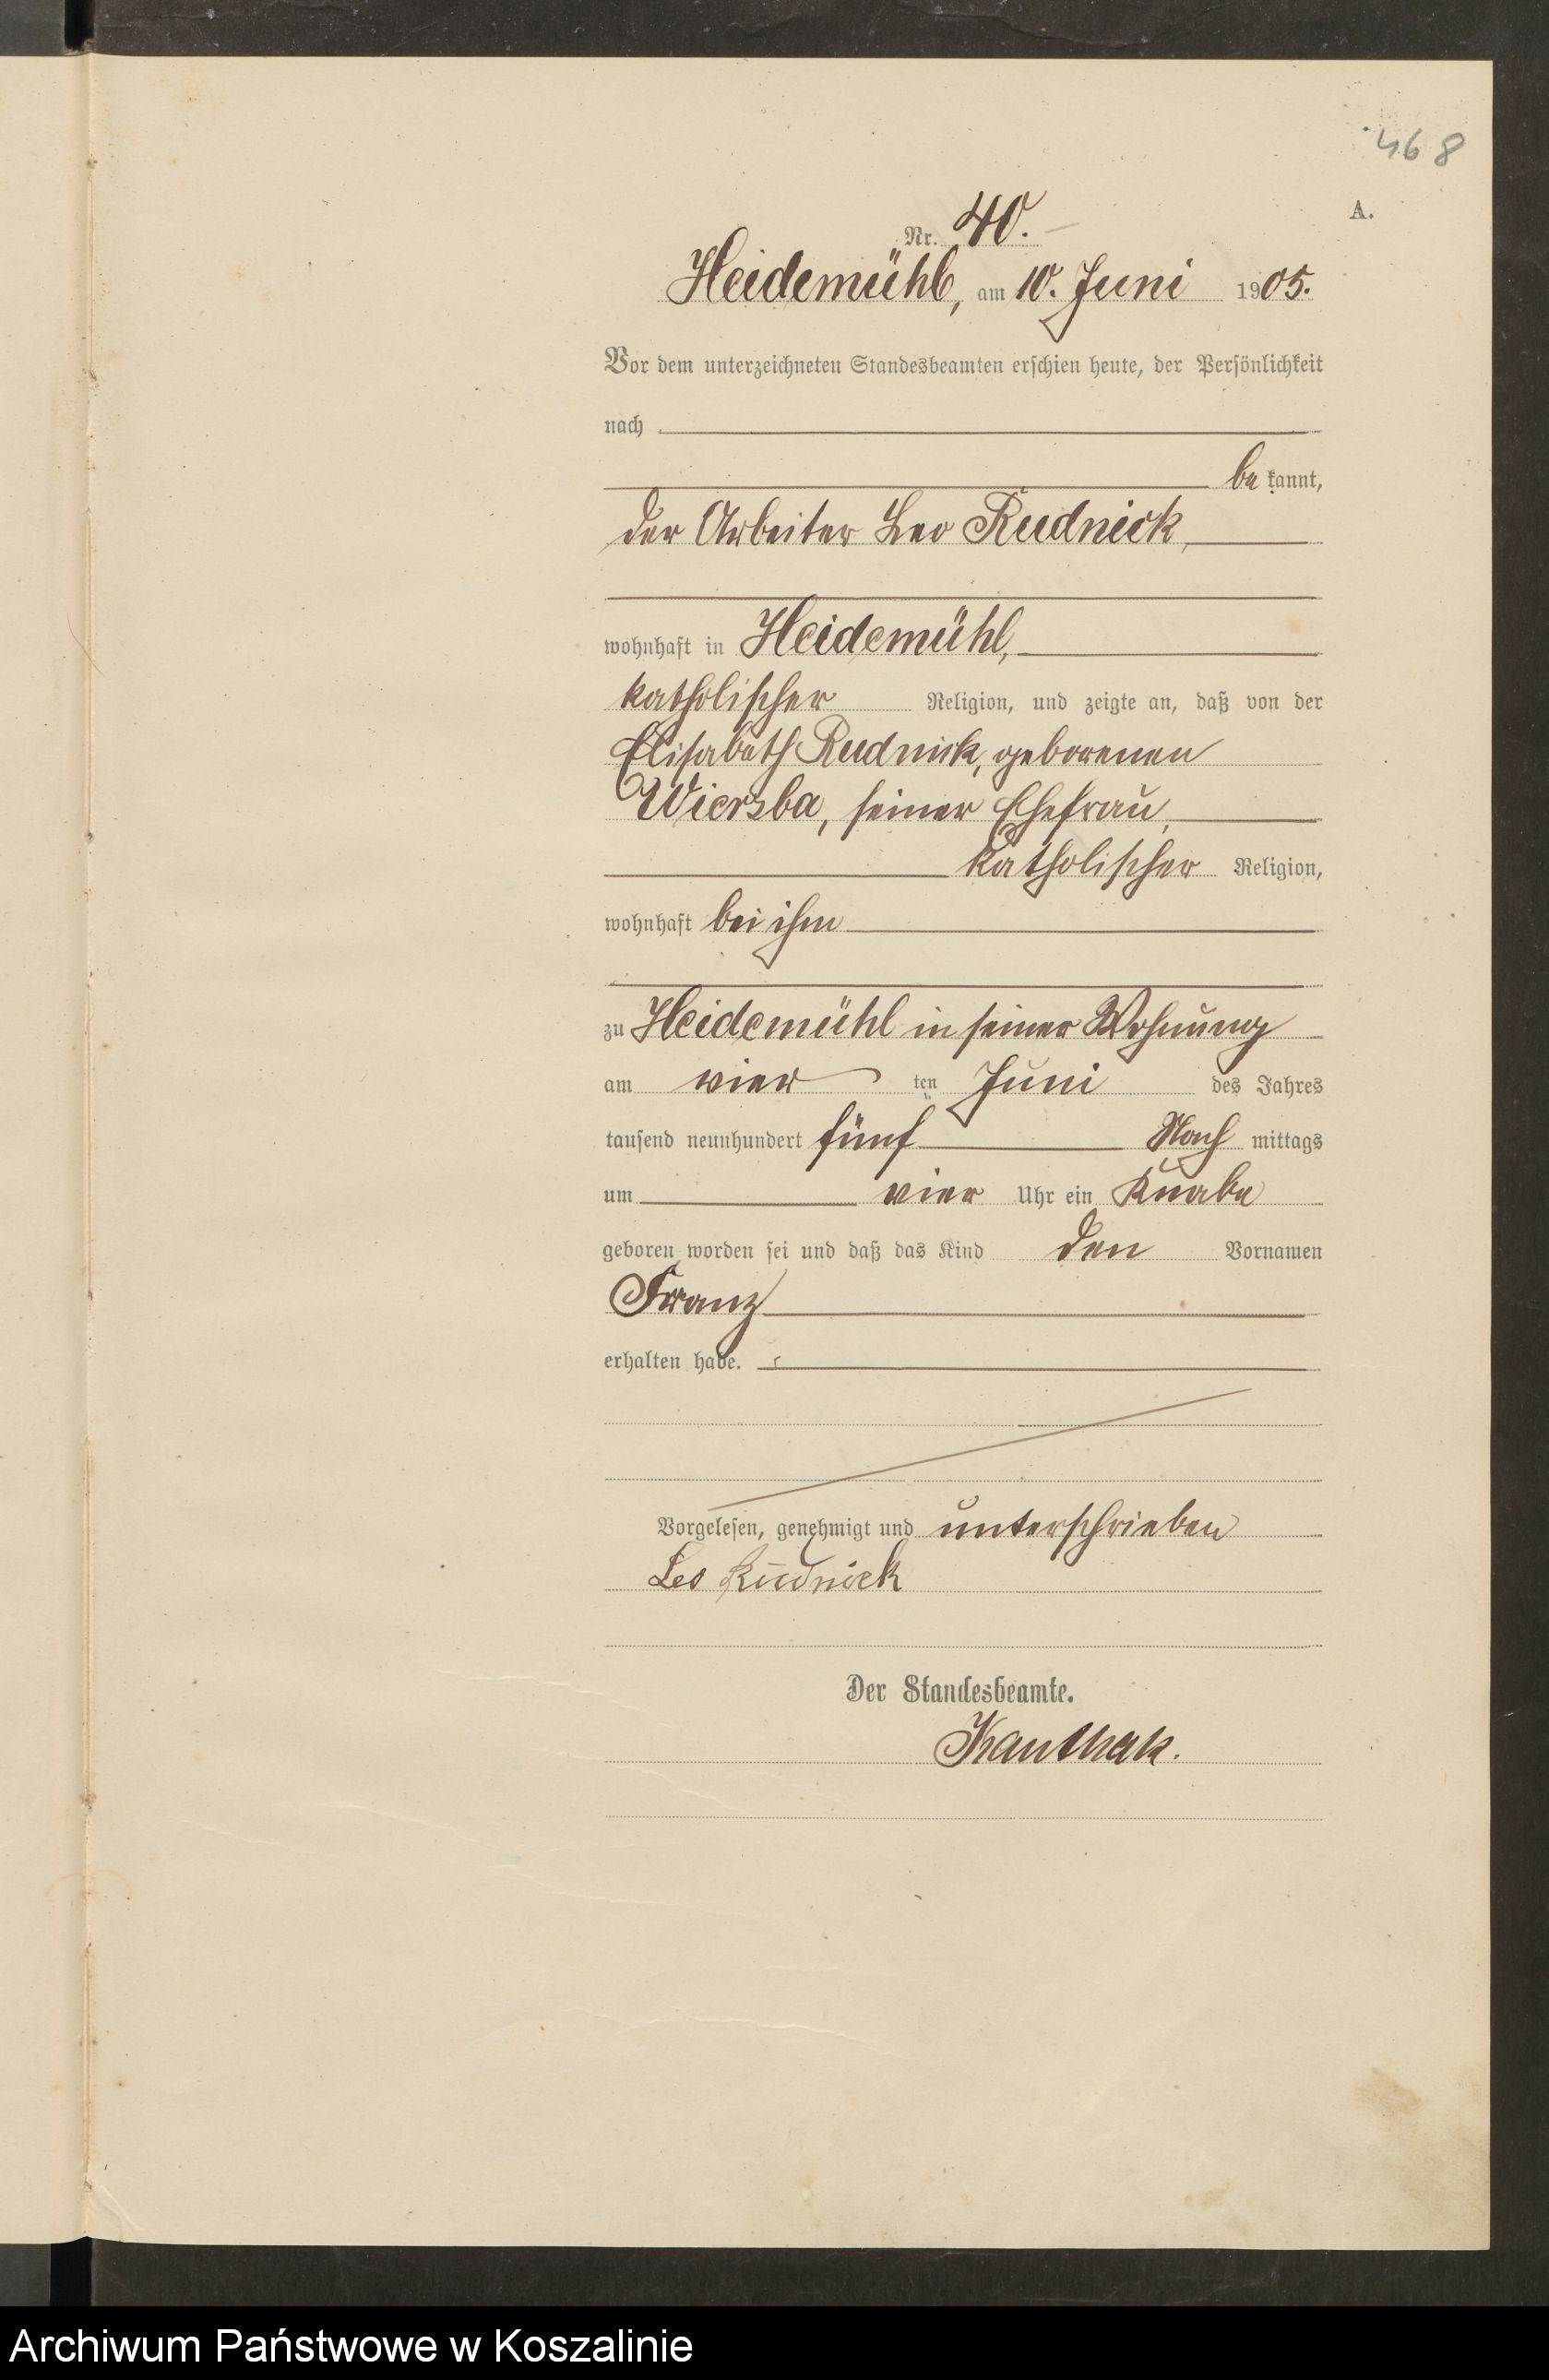 468
A.
Nr. 40.
Heidemühl, am 10. Juni 1905.
Vor dem unterzeichneten Standesbeamten erschien heute, der Persönlichkeit
nach
be kannt,
der Arbeiter Leo Rudnick,
wohnhaft in Heidemühl,
katholischer Religion, und zeigte an, daß von der
Elisabeth Rudnick, geborenen
Wiersba, seiner Ehefrau,
katholischer Religion,
wohnhaft bei ihm
zu Heidemühl in seiner Wohnung
am vier ten Juni des Jahres
tausend neunhundert fünf Nach mittags
um vier Uhr ein Knabe
geboren worden sei und daß das Kind den Vornamen
Franz
erhalten habe.
Vorgelesen, genehmigt und unterschrieben
Leo Rudnick
Der Standesbeamte.
Kanthak.
Archiwum Państwowe w Koszalinie